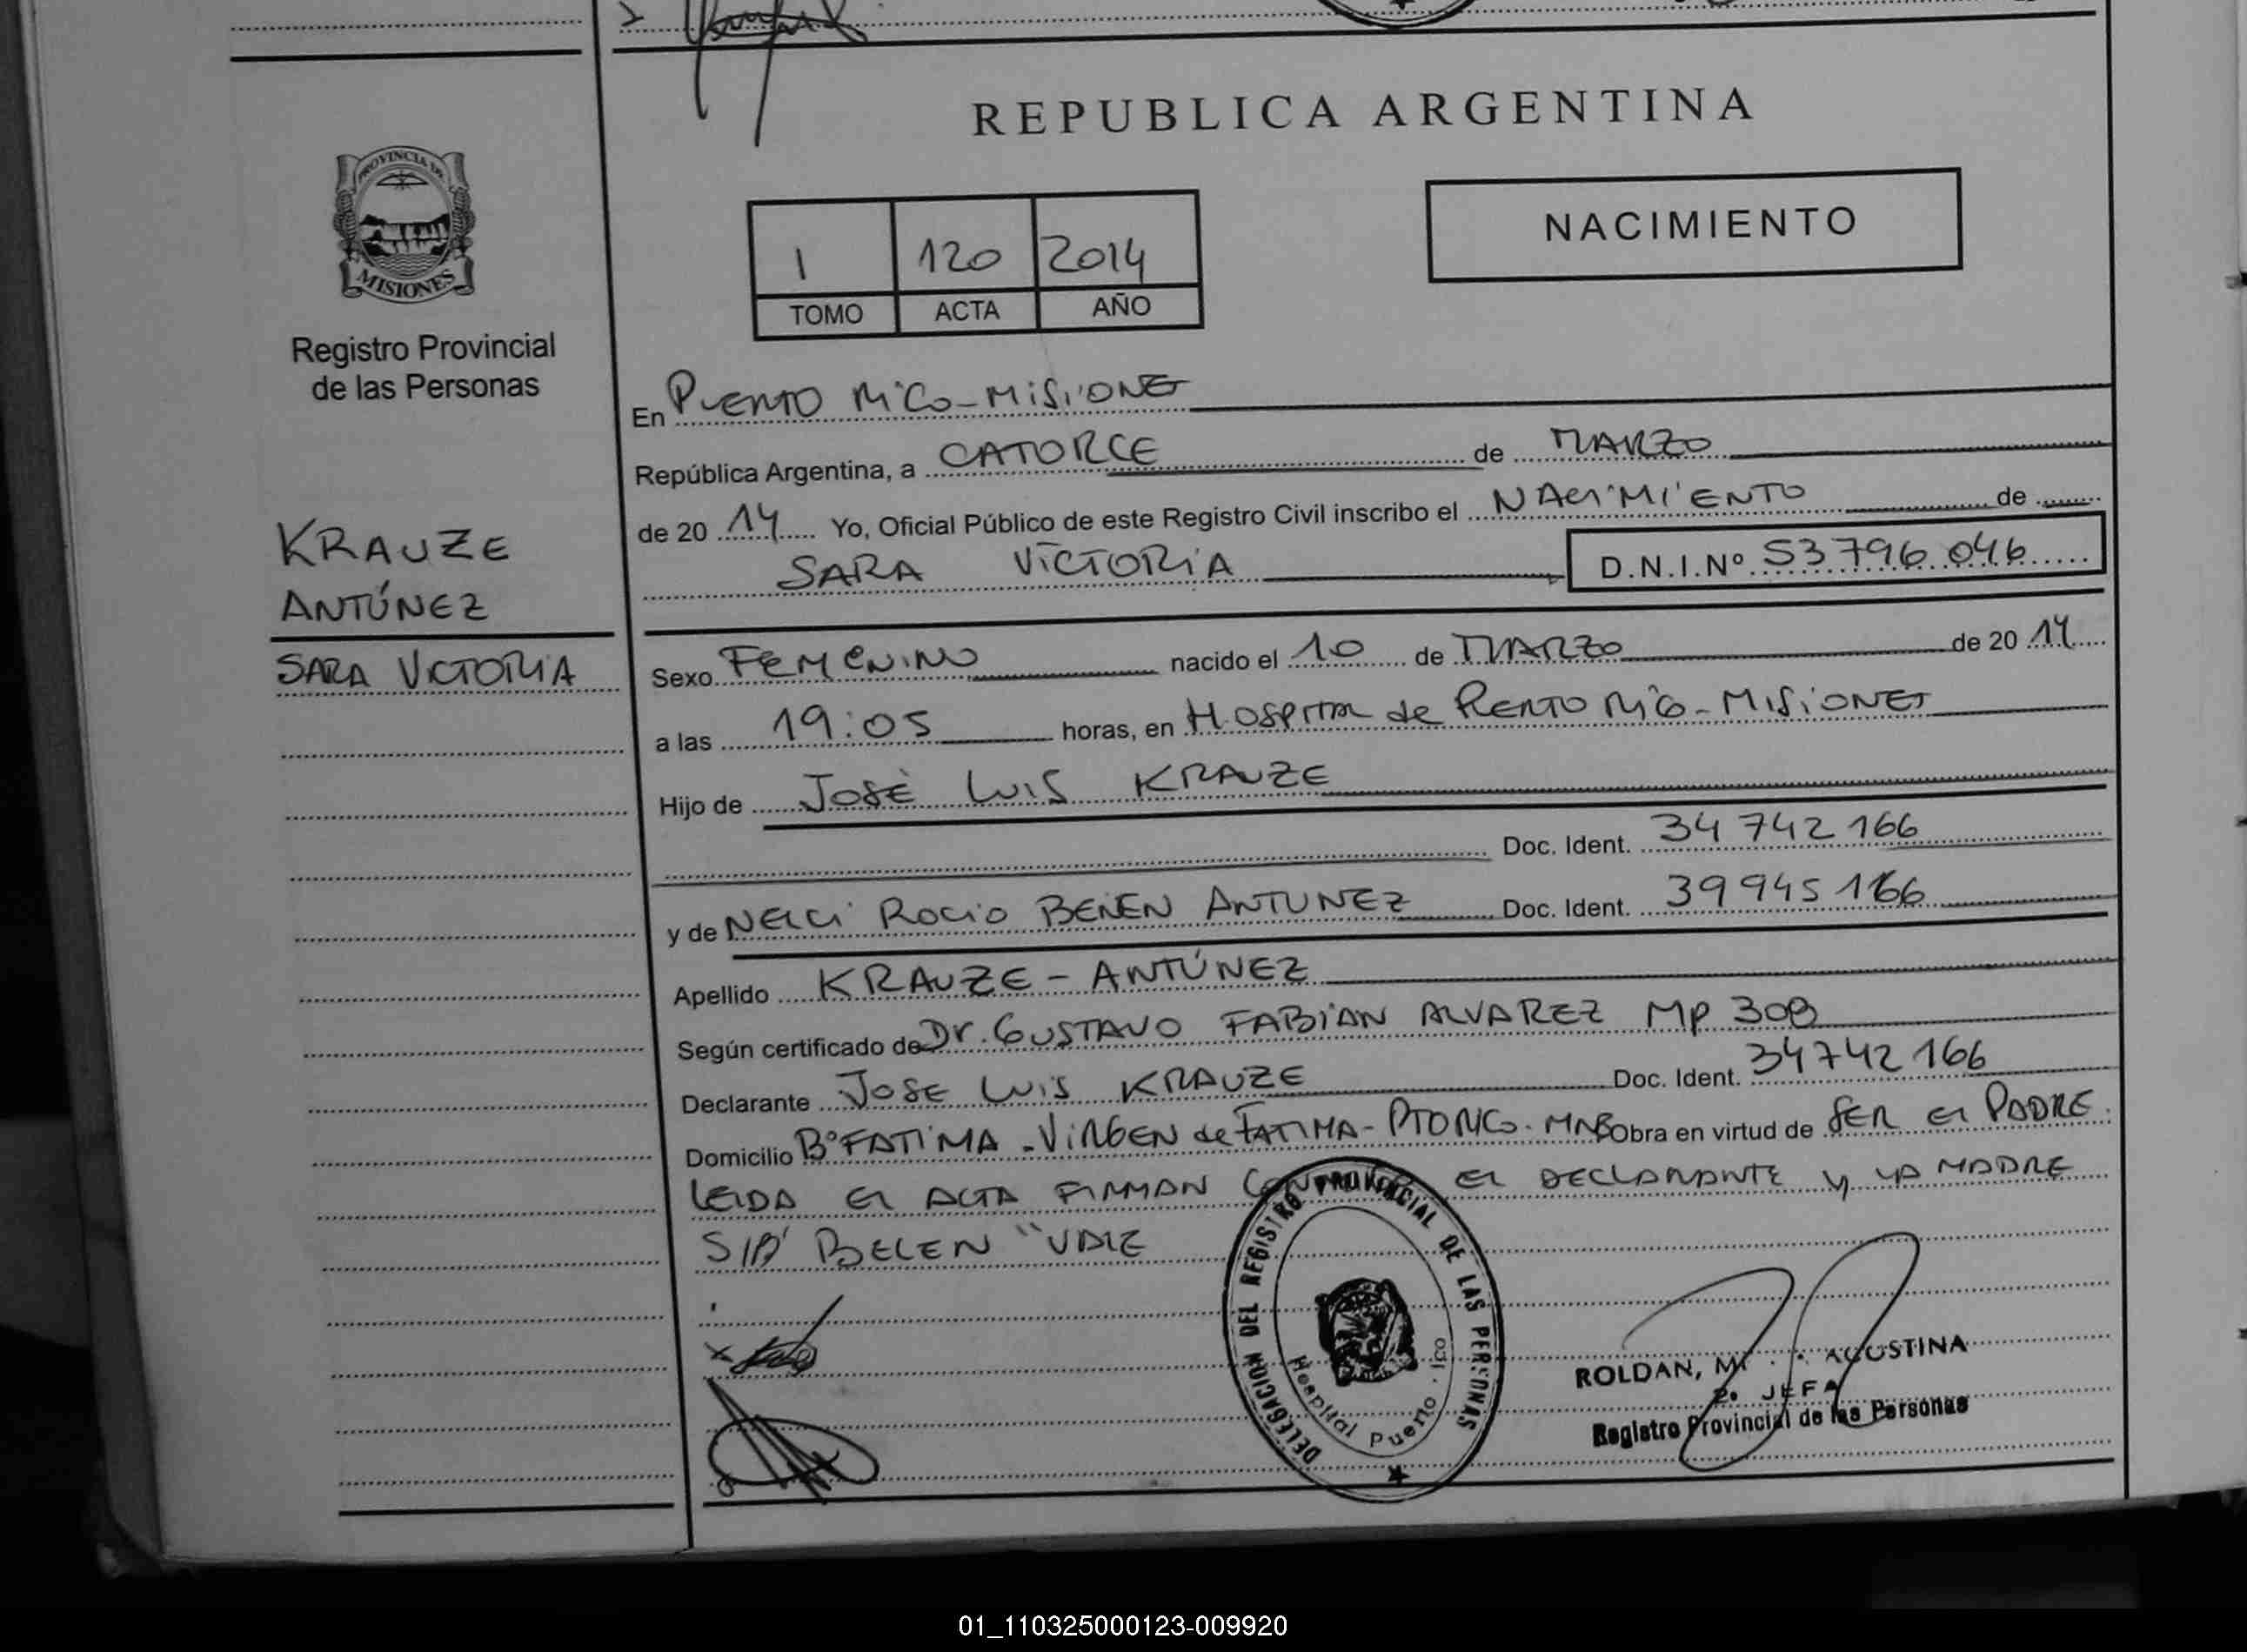 REPUBLICA ARGENTINA
PROVINCIA DE
MISIONES
Registro Provincial
de las Personas
KRAUZE
ANTÚNEZ
SARA VICTORIA
1 120 2014
TOMO ACTA AÑO
NACIMIENTO
En PUERTO RICO - MISIONES
República Argentina, a CATORCE de MARZO
de 20 14 Yo, Oficial Público de este Registro Civil inscribo el NACIMIENTO de
SARA VICTORIA D.N.I.Nº 53 796 046
Sexo FEMENINO nacido el 10 de MARZO de 20 14
a las 19:05 horas, en HOSPITAL de PUERTO RICO - MISIONES
Hijo de JOSÉ LUIS KRAUZE
Doc. Ident. 34 742 166
y de NELCI ROCIO BENEN ANTUNEZ Doc. Ident. 39 945 166
Apellido KRAUZE - ANTÚNEZ
Según certificado de Dr. GUSTAVO FABIAN ALVAREZ MP 308
Declarante JOSE LUIS KRAUZE Doc. Ident. 34742 166
Domicilio Bº FATIMA - VIRGEN de FATIMA - PTO RICO - MNES Obra en virtud de SER EL PADRE
LEIDA EL ACTA FIRMAN EL DECLARANTE y LA MADRE
S/B BELEN "VALE
DELEGACION DEL REGISTRO PROVINCIAL DE LAS PERSONAS
Hospital Puerto
ROLDAN, AGOSTINA
2º JEFA
Registro Provincial de las Personas
01_110325000123-009920